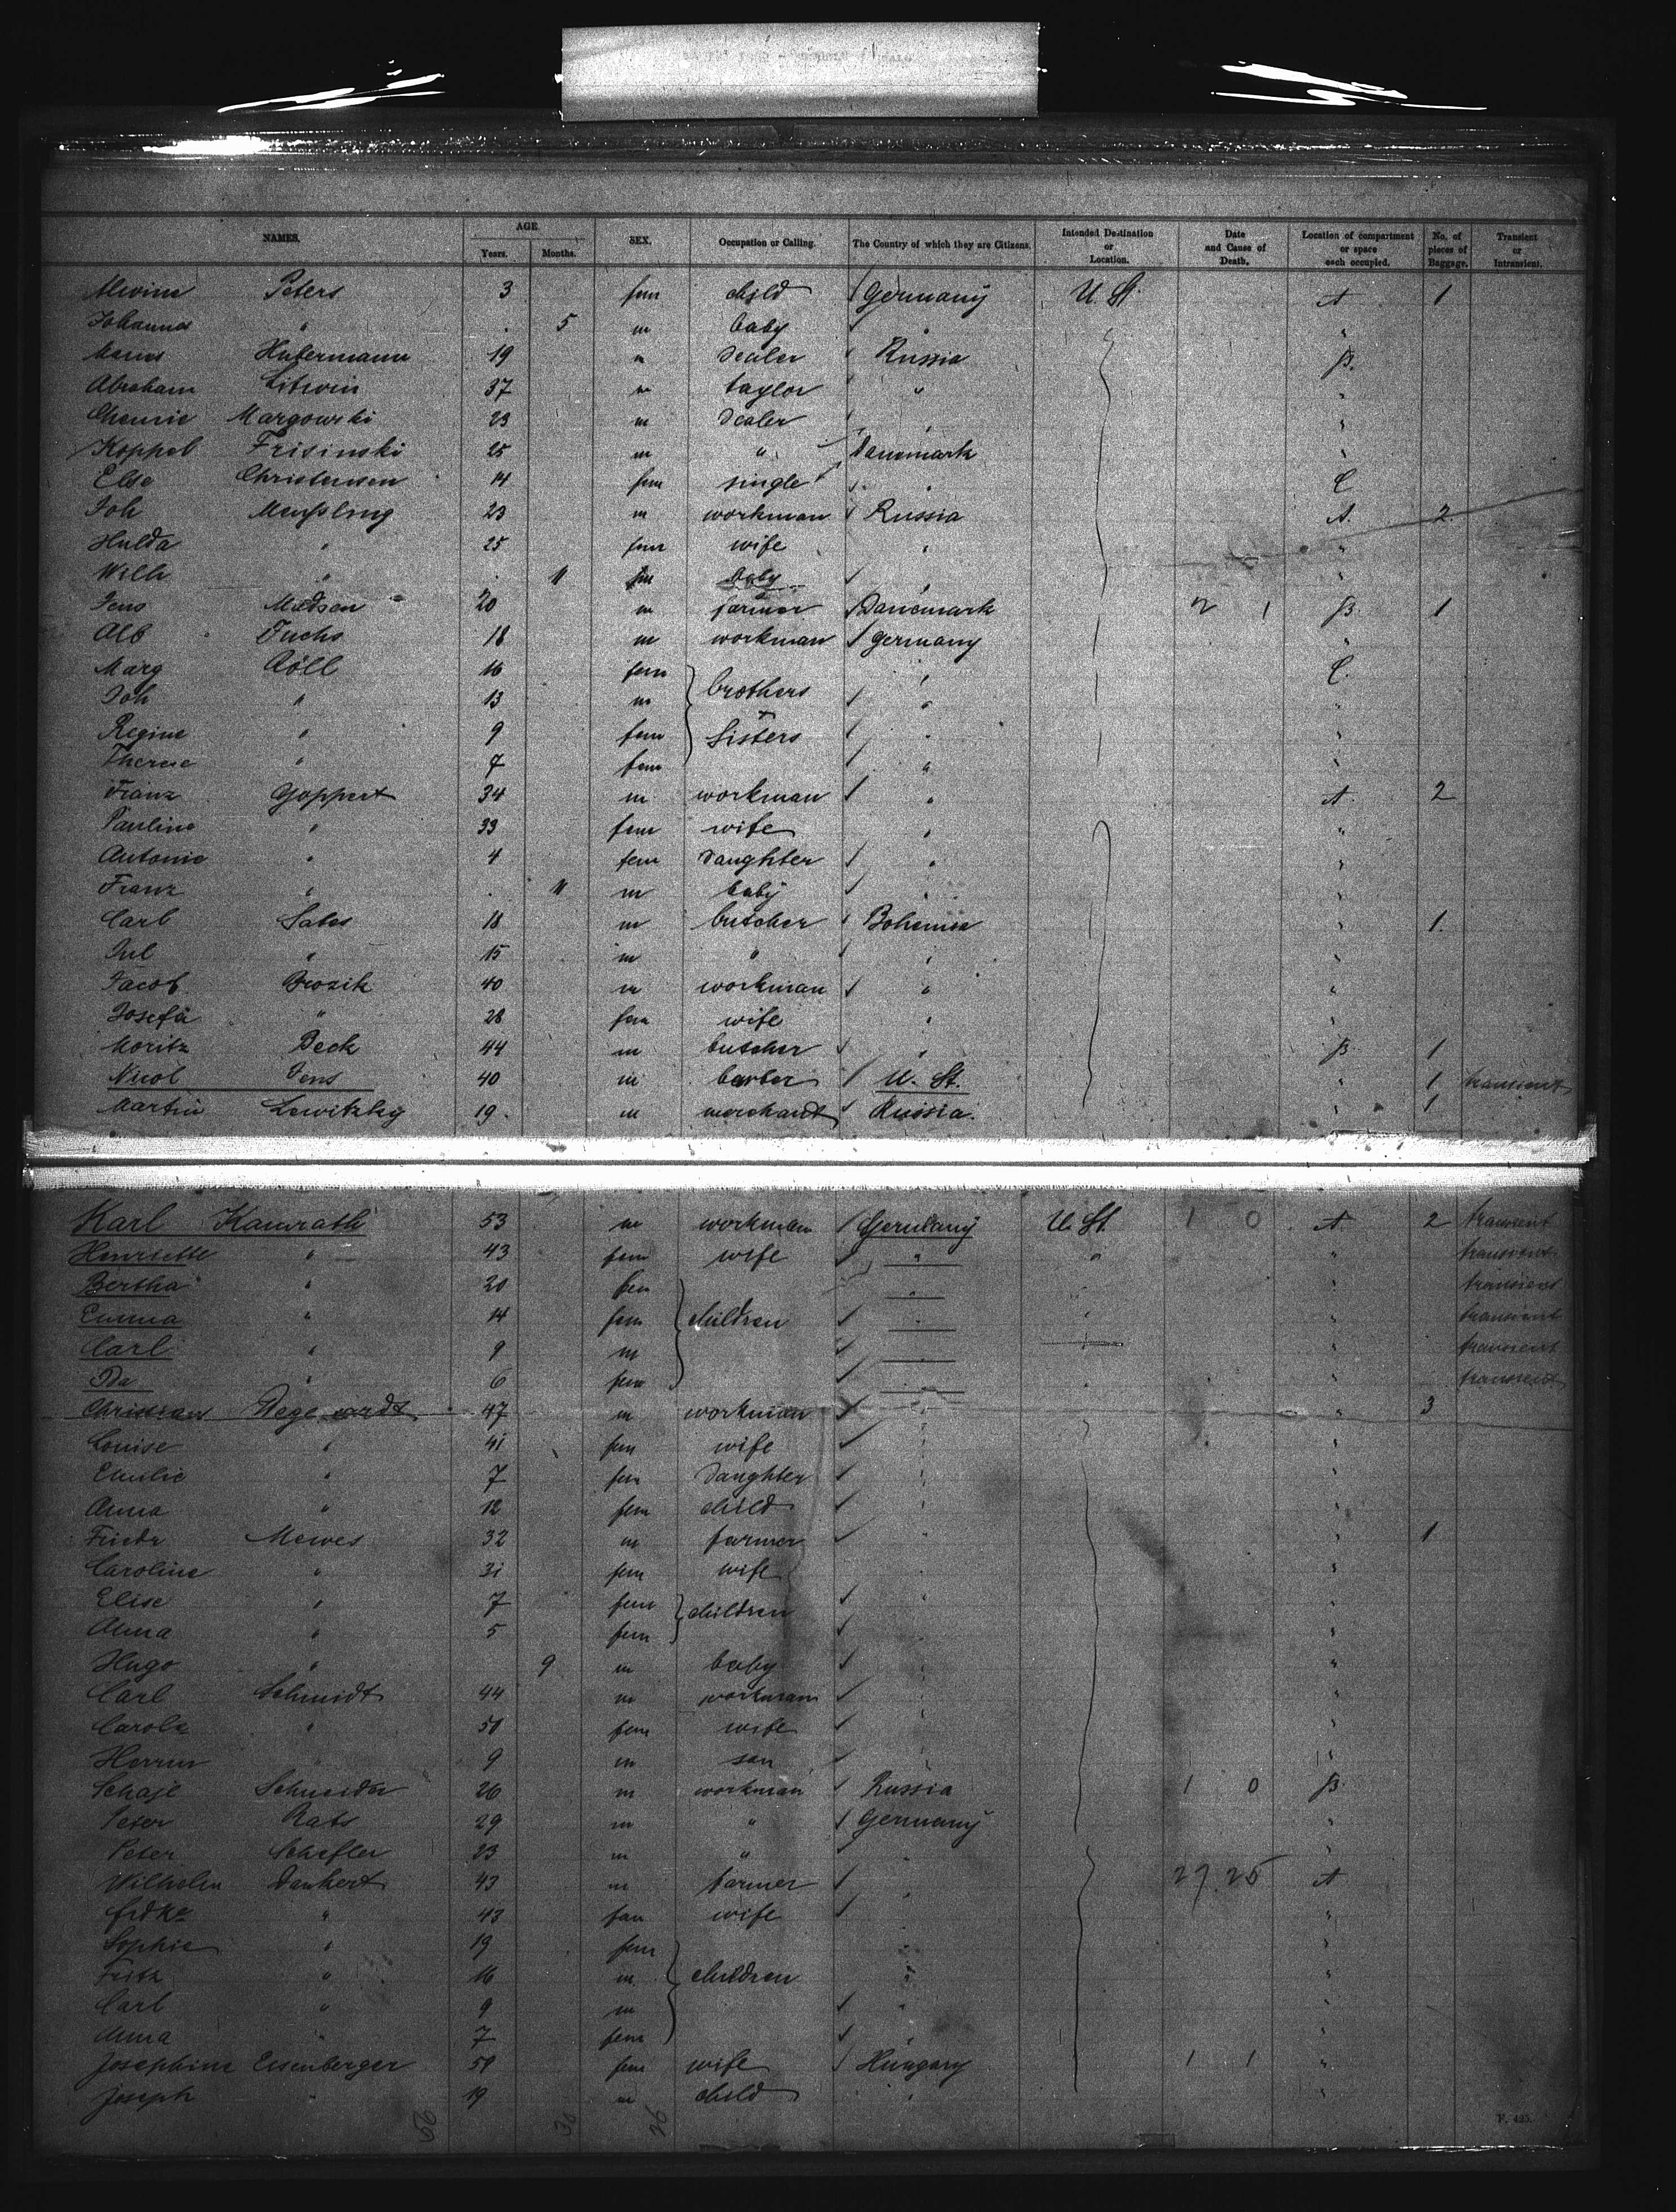 NAMES. AGE SEX. Occupation or Calling. The Country of which they are Citizens. Intended Destination or Location. Date and Cause of Death. Location of compartment or space each occupied. No. of pieces of Baggage. Transient or Intransient.
Years. Months.
Peters 3 fem child Germany U. St. A 1
" 5 m baby "
19 m dealer Russia B.
Abraham Litwin 37 m taylor " "
Margowski 23 m dealer " "
Koppel Frisinski 25 m " Danemark "
Else Christensen 14 fem single " C
Joh 23 m workman Russia A. 2
Hulda " 25 fem wife " "
Wilh " 11 baby " "
Jens Madsen 20 m farmer Danemark 2 1 B. 1
Alb Fuchs 18 m workman Germany "
Marg Röll 16 fem brothers " C.
Joh " 13 m " "
Regine " 9 fem Sisters " "
Therese " 7 fem " "
Franz Goppert 34 m workman " A. 2
Pauline " 33 fem wife " "
Antonie " 4 fem daughter " "
Franz " 11 m baby " "
Carl 18 m butcher Bohemia " 1.
Jul " 15 m " " "
Jacob Brozik 40 m workman " "
Josefa " 28 fem wife " "
Moritz Beck 44 m butcher " B. 1
Nicol Jens 40 m barber U. St. " 1 transient
Martin Lewitzky 19. m merchant Russia. " 1
Karl Kamrath 53 m workman Germany U. St. 1 0 A 2 transient
Henriette " 43 fem wife " " " transient
Bertha " 20 fem " " transient
Emma " 14 fem children " " " transient
Carl " 9 m " " transient
Ida " 6 fem " " transient
Christian 47 m workman " " 3
Louise " 41 fem wife " "
Emilie " 7 fem daughter " "
Anna " 12 fem child " "
Friedr Mewes 32 m farmer " " 1
Caroline " 31 fem wife " "
Elise " 7 fem children " "
Anna " 5 fem "
Hugo " 9 m baby " "
Carl Schmidt 44 m workman " "
" fem wife " "
" 9 m son " "
Schaje Schneider 26 m workman Russia 1 0 B.
Peter Rats 29 m " Germany "
Peter Schefler 23 m " " "
Wilhelm Dankert 43 m farmer " 27. 25 A
Frdke " 43 fem wife " "
Sophie " 19 fem " "
Fritz " 16 m children " "
Carl " 9 m " "
Anna " 7 fem " "
Josephine Eisenberger fem wife Hungary 1 1 "
Joseph " 19 m child " "
F. 425.